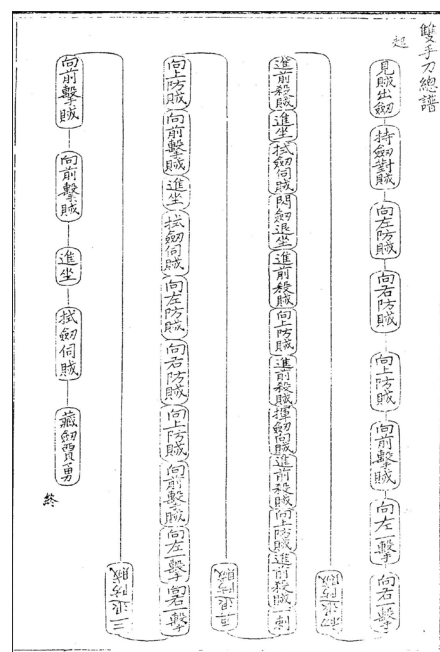 雙手刀總譜
起
見賊出劒
持劒對賊
向左防賊
向右防賊
向上防賊
向前擊賊
向左一擊
向右一擊
初退防賊
進前殺賊
進坐
拭劒伺賊
閃劒退坐
進前殺賊
向上防賊
進前殺賊
揮劒向賊
進前殺賊
向上防賊
進前殺賊
一刺
再退防賊
向上防賊
向前擊賊
進坐
拭劒伺賊
向左防賊
向右防賊
向上防賊
向前擊賊
向左一擊
向右一擊
三退防賊
向前擊賊
向前擊賊
進坐
拭劒伺賊
藏劒賈勇
終